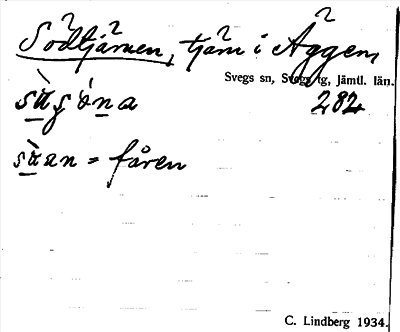 Södtjärnen, tjärn i Äggen,
Svegs sn, Svegs tg, Jämtl. län.
282
sù̱ǥó̱na
sù̱an = fåren
C. Lindberg 1934.